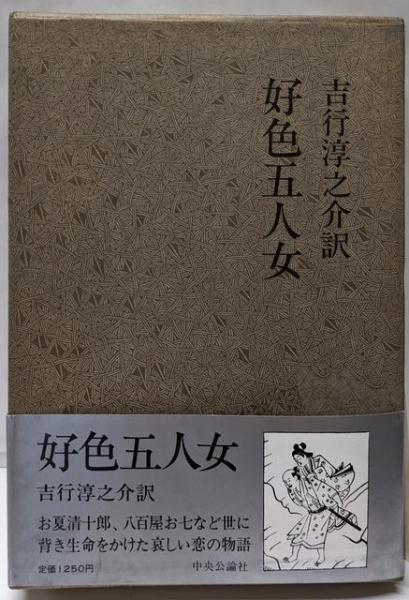 吉行淳之介訳
好色五人女
好色五人女
吉行淳之介訳
お夏清十郎、八百屋お七など世に
背き生命をかけた哀しい恋の物語
定価1250円
中央公論社